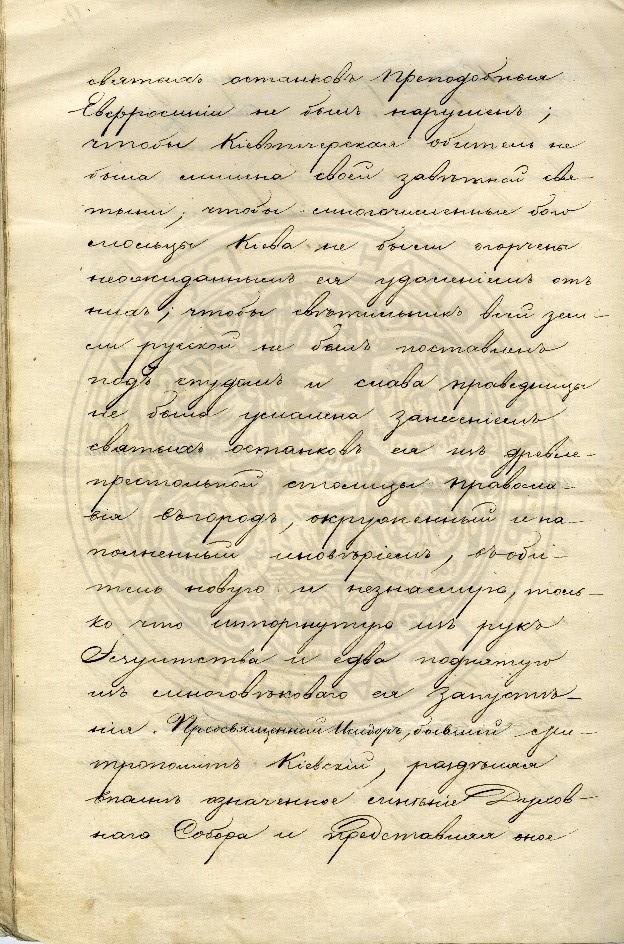 святыхъ останковъ Преподобныя
Евфросиніи не былъ нарушенъ;
чтобы Кіевопечерская обитель не
была лишена своей завѣтной свя-
тыни; чтобы многочисленные бого
мольцы Кіева не были огорчены
неожиданнымъ ея удаленіемъ отъ
нихъ; чтобы свѣтильникъ всей зем-
ли русской не былъ поставленъ
подъ спудомъ и слава праведницы
не была умалена занесеніемъ
святыхъ останковъ ея изъ древле-
престольной столицы правосла-
вія въ городъ, окруженный и на-
полненный иновѣріемъ, въ оби-
тель новую и незнаемую, толь-
ко что исторгнутую изъ рукъ
Іезуитства и едва поднятую
изъ многовѣковаго ея запустѣ-
нія. Преосвященный Исидоръ, бывшій ми-
трополитъ Кіевскій, раздѣляя
вполнѣ означенное мнѣніе Духов-
наго Собора и представляя оное